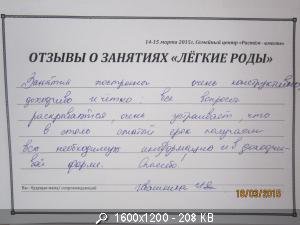 14-15 марта 2015г. Семейный центр «Растём вместе»
ОТЗЫВЫ О ЗАНЯТИЯХ «ЛЁГКИЕ РОДЫ»
Занятия построены очень конструктивно,
доходчиво и чётко: все вопросы
раскрываются очень устраивает, что
в столь сжатый срок получаем
всю необходимую информацию и в доходчи-
вой форме. Спасибо!
Вы - будущая мама / сопровождающий
16/03/2015
1600x1200 - 208 KB